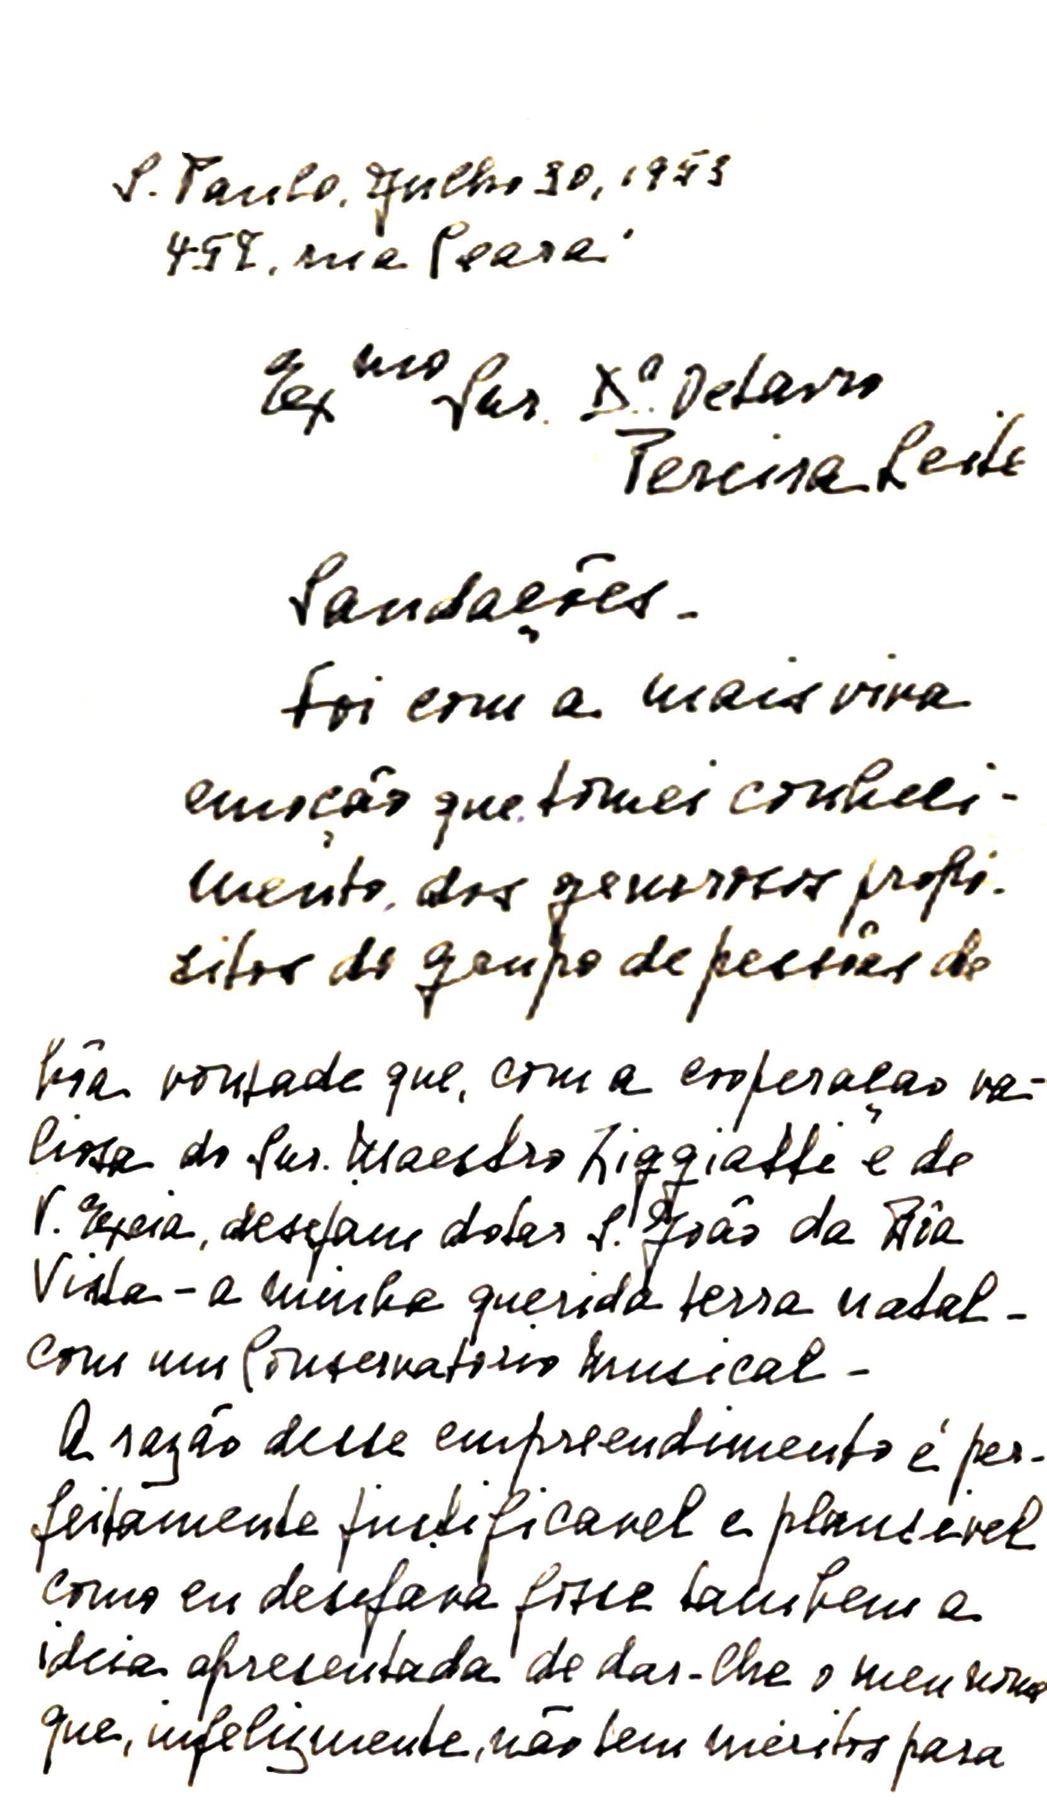 S. Paulo, Julho 30, 1953
457, rua Ceará
Exmo Snr. Dr. Octavio
Pereira Leite
Saudações -
Foi com a mais viva
emoção que tomei conheci-
mento dos generosos propó-
sitos do grupo de pessôas de
bôa vontade que, com a cooperação va-
liosa do Snr. Maestro Ziggiatti e de
V. Excia, desejam dotar S. João da Bôa
Vista - a minha querida terra natal -
com um Conservatorio Musical -
A razão desse empreendimento é per-
feitamente justificavel e plausivel
como eu desejava fosse tambem a
ideia apresentada de dar-lhe o meu nome
que, infelizmente, não tem méritos para